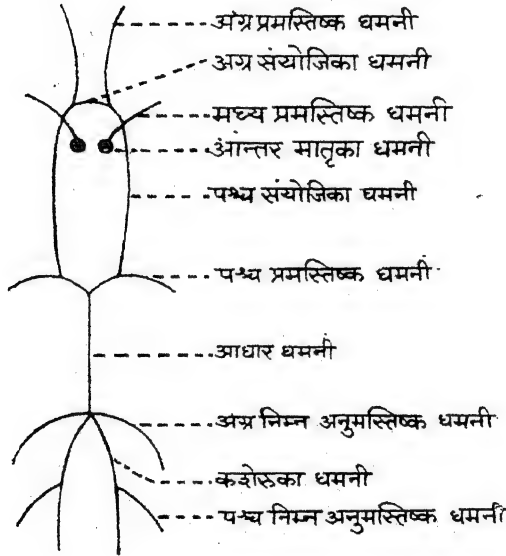 अंग्र प्रमस्तिष्क धमनी
अग्र संयोजिका धमनी
मध्य प्रमस्तिष्क धमनी
आंन्तर मातृका धमनी
पश्च संयोजिका धमनी
पश्च प्रमस्तिष्क धमनी
आधार धमनी
अग्र निम्न अनुमस्तिष्क धमनी
कशेरुका धमनी
पश्च निम्न अनुमस्तिष्क धमनी